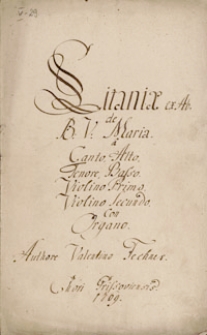 Litaniæ ex Ab.
de
B. V. Maria.
a
Canto, Alto,
Tenore, Basso.
Violino Primo,
Violino Secundo,
Con
Organo.
Authore Valentino
Chori
1709.